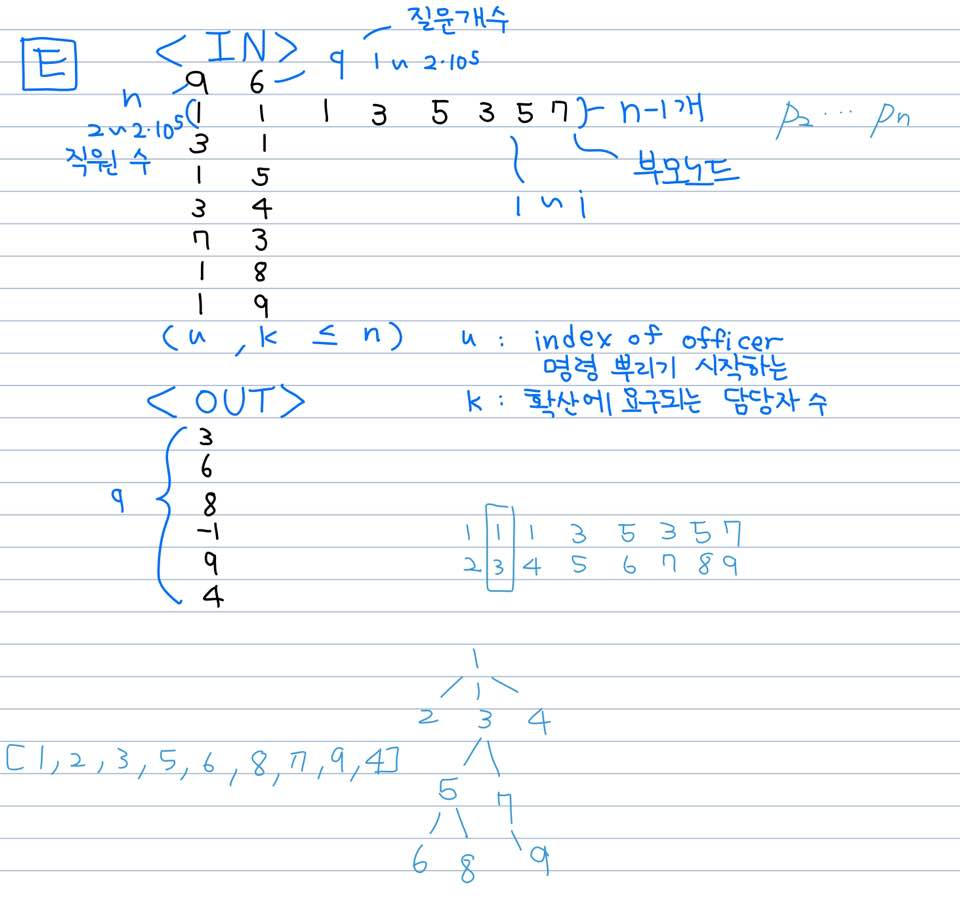 질문개수
E <IN> q 1 ~ 2·10⁵
9 6
n (1 1 1 3 5 3 5 7 }- n-1개 p₂ ··· pₙ
2~2·10⁵ 3 1
직원 수 1 5 부모노드
3 4 1 ~ i
7 3
1 8
1 9
(u , k ≤ n) u : index of officer
명령 뿌리기 시작하는
<OUT> k : 확산에 요구되는 담당자 수
3
6
q { 8
-1
9
4
1 1 1 3 5 3 5 7
2 3 4 5 6 7 8 9
1
2 3 4
[1, 2, 3, 5, 6, 8, 7, 9, 4]
5 7
6 8 9